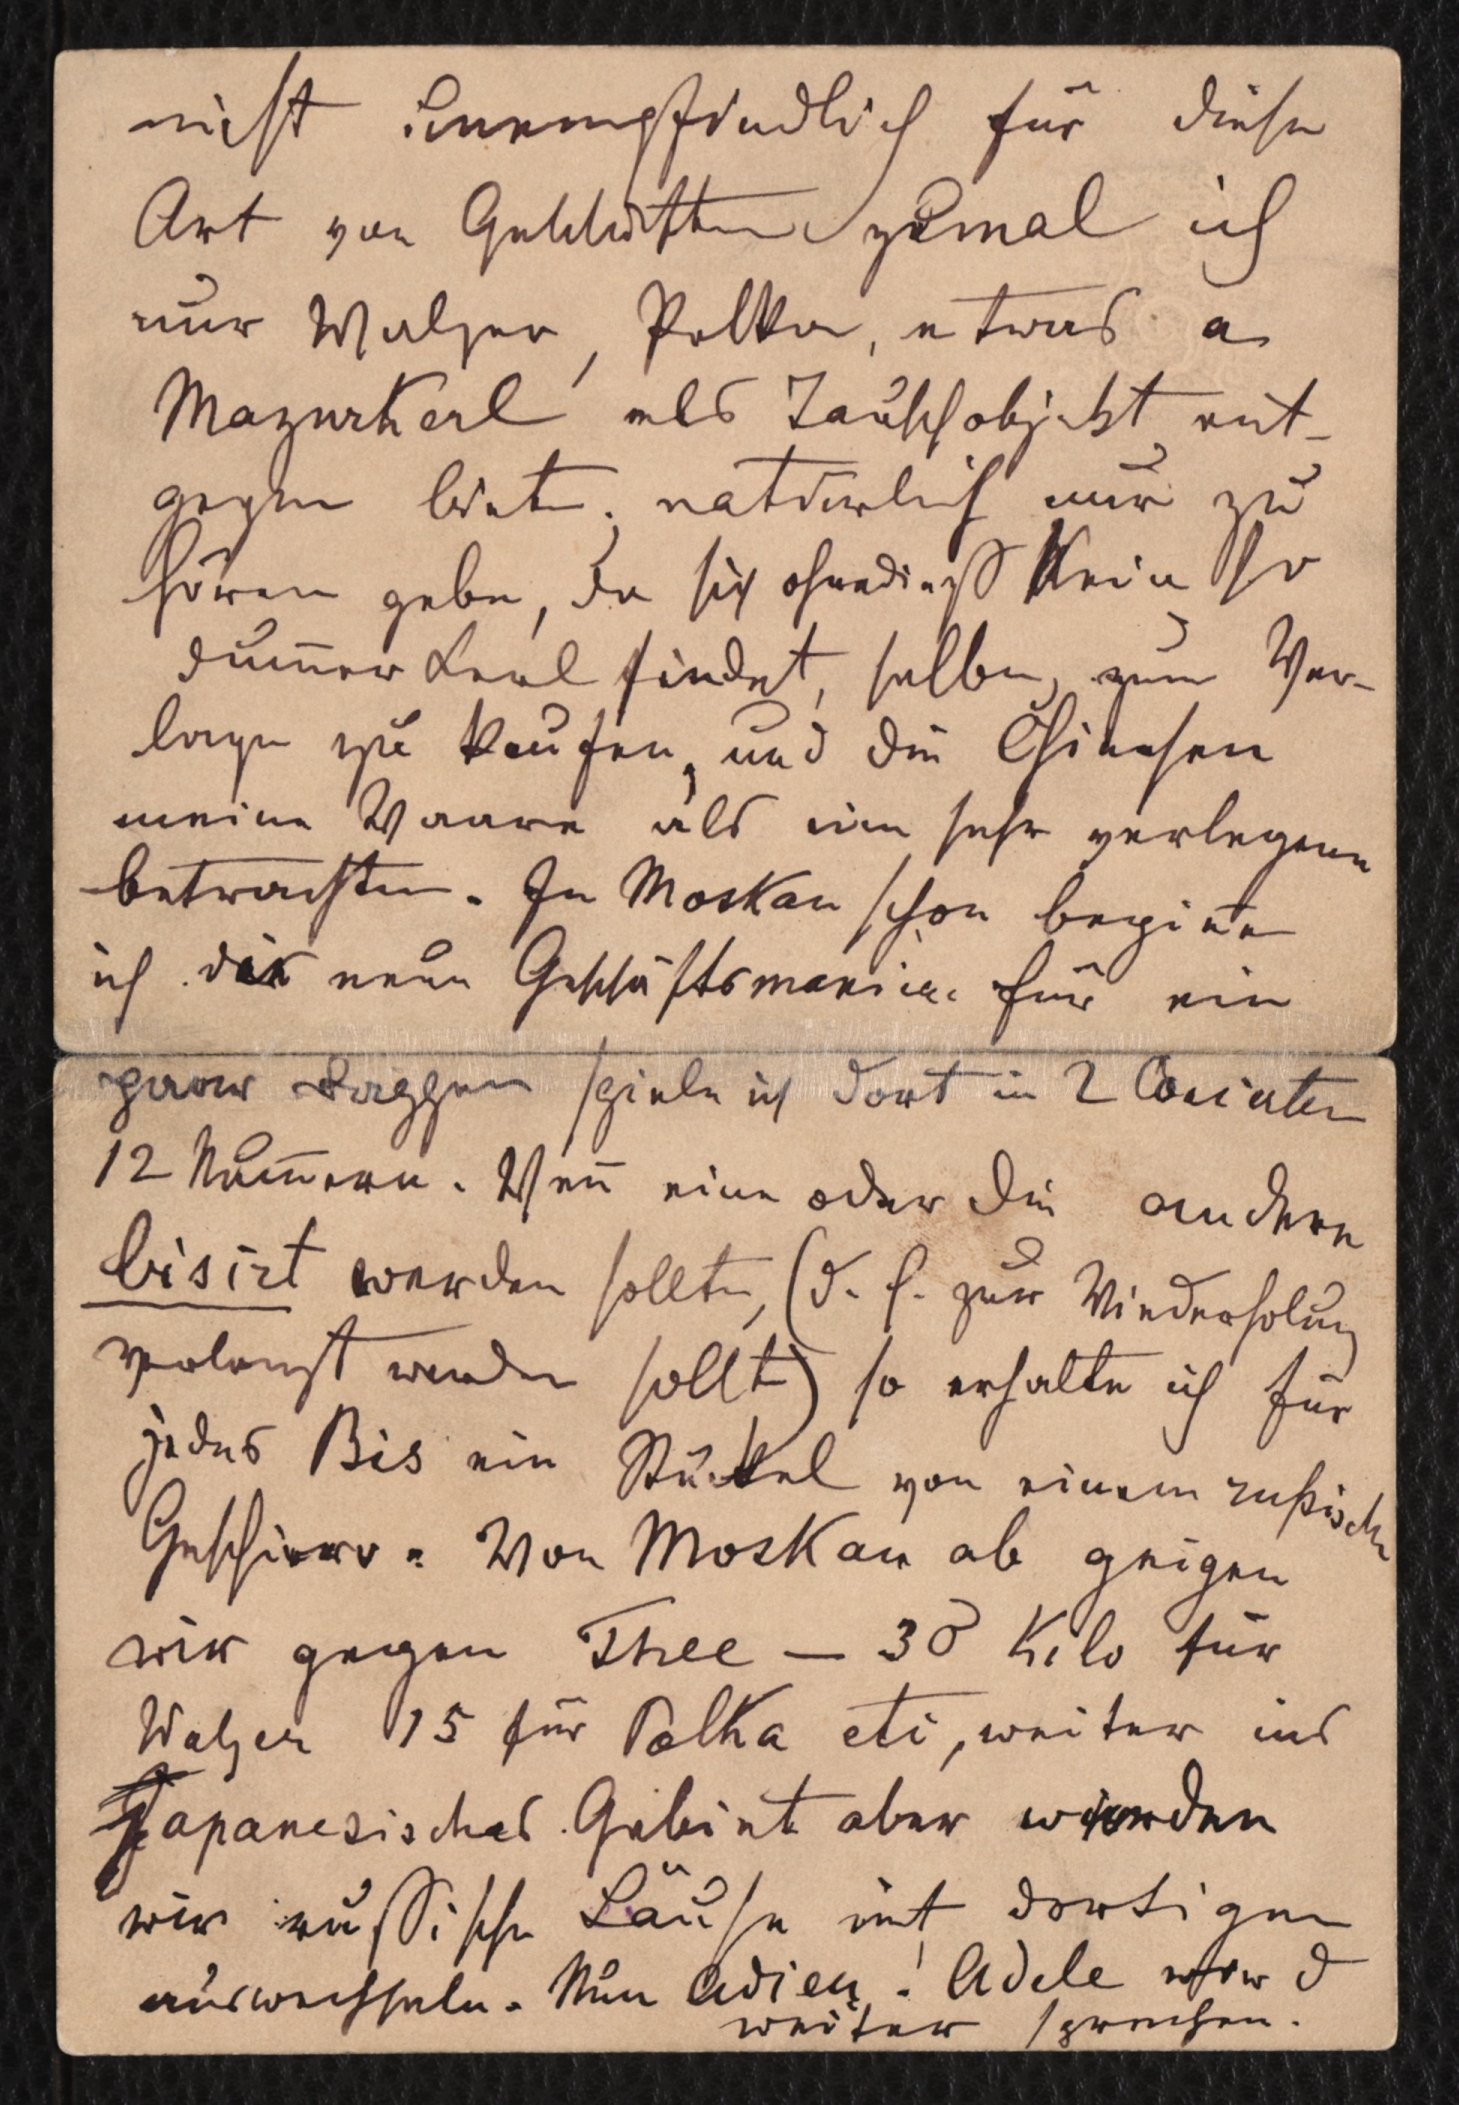 nicht unempfindlich für diese
Art von Geschäften zumal ich
nur Walzer, Polka, etwas a
Mazurkerl als Tauschobjekt ent-
gegen biete, natürlich nur zu
hören gebe, da sich ohnedieß kein so
dum̅er Kerl findet, selbe zum Ver-
lage zu kaufen, und die Chinesen
meine Waare als eine sehr verlegene
betrachten. In Moskau schon begin̅e
ich die neue Geschäftsmanier für ein
paar spiele ich dort in 2 Concerten
12 Num̅ern. Wen̅ eine oder die andere
bisirt werden sollte, (d. h. zur Wiederholung
verlangt werden sollte) so erhalte ich für
jedes Bis ein Stückel von einem rußischen
Geschirr. Von Moskau ab geigen
wir gegen Thee — 30 Kilo für
Walzer 15 für Polka etc, weiter ins
Japanesisches Gebiet aber werden
wir russische Läuse mit dortigen
auswechseln. Nun Adieu! Adele wird
weiter sprechen.